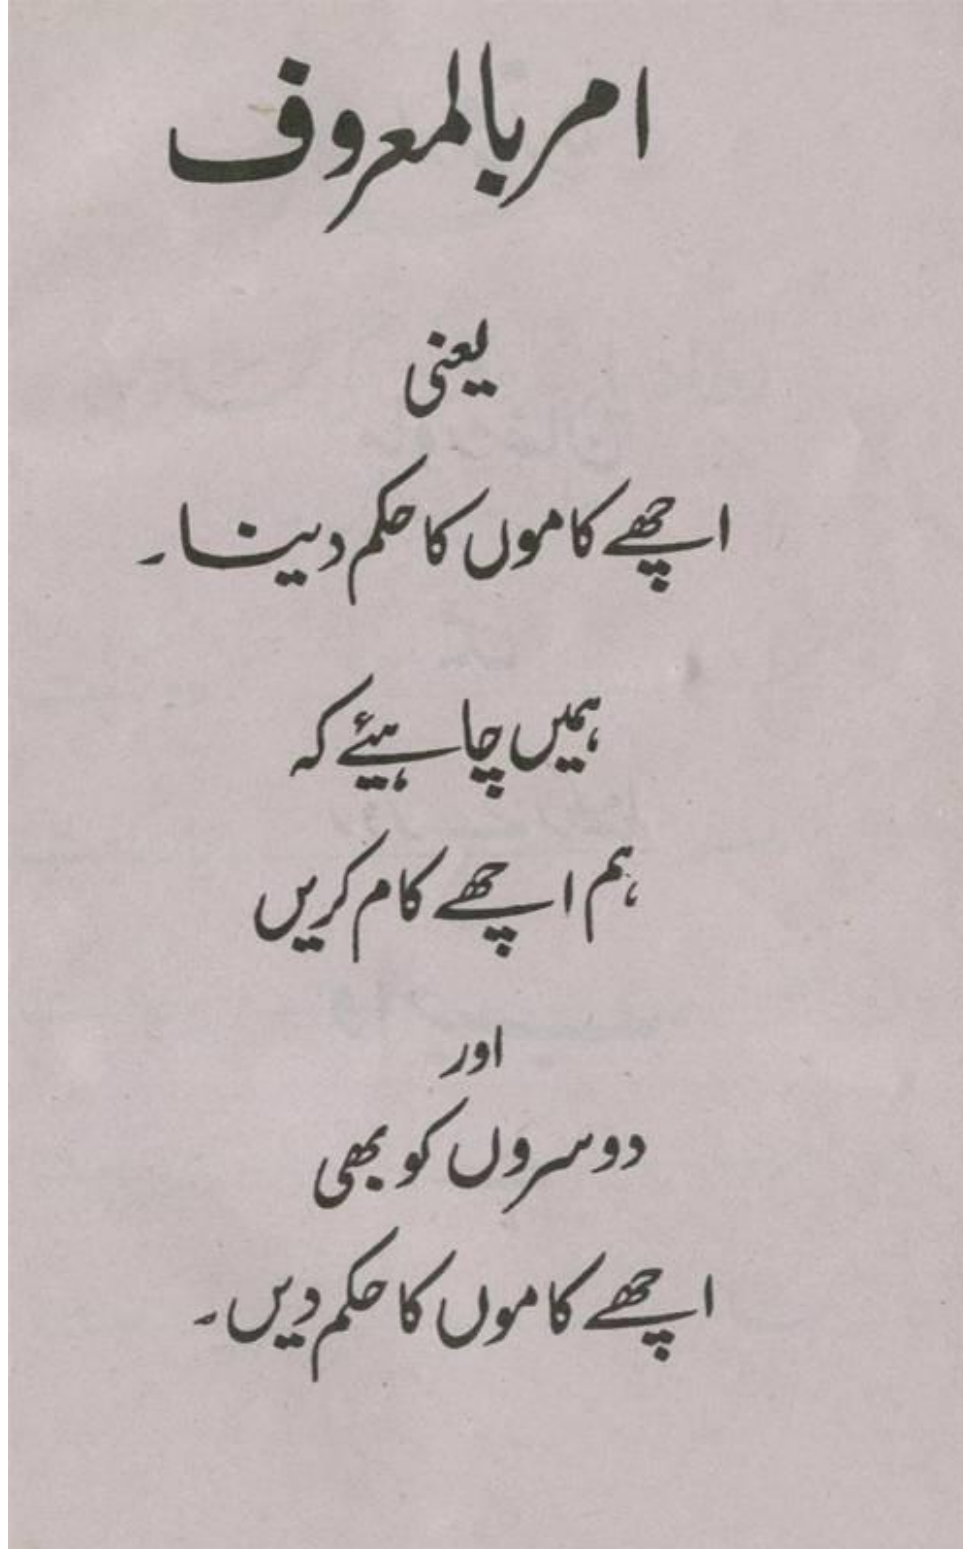 امر بالمعروف
یعنی
اچھے کاموں کا حکم دینا۔
ہمیں چاہیئے کہ
ہم اچھے کام کریں
اور
دوسروں کو بھی
اچھے کاموں کا حکم دیں۔